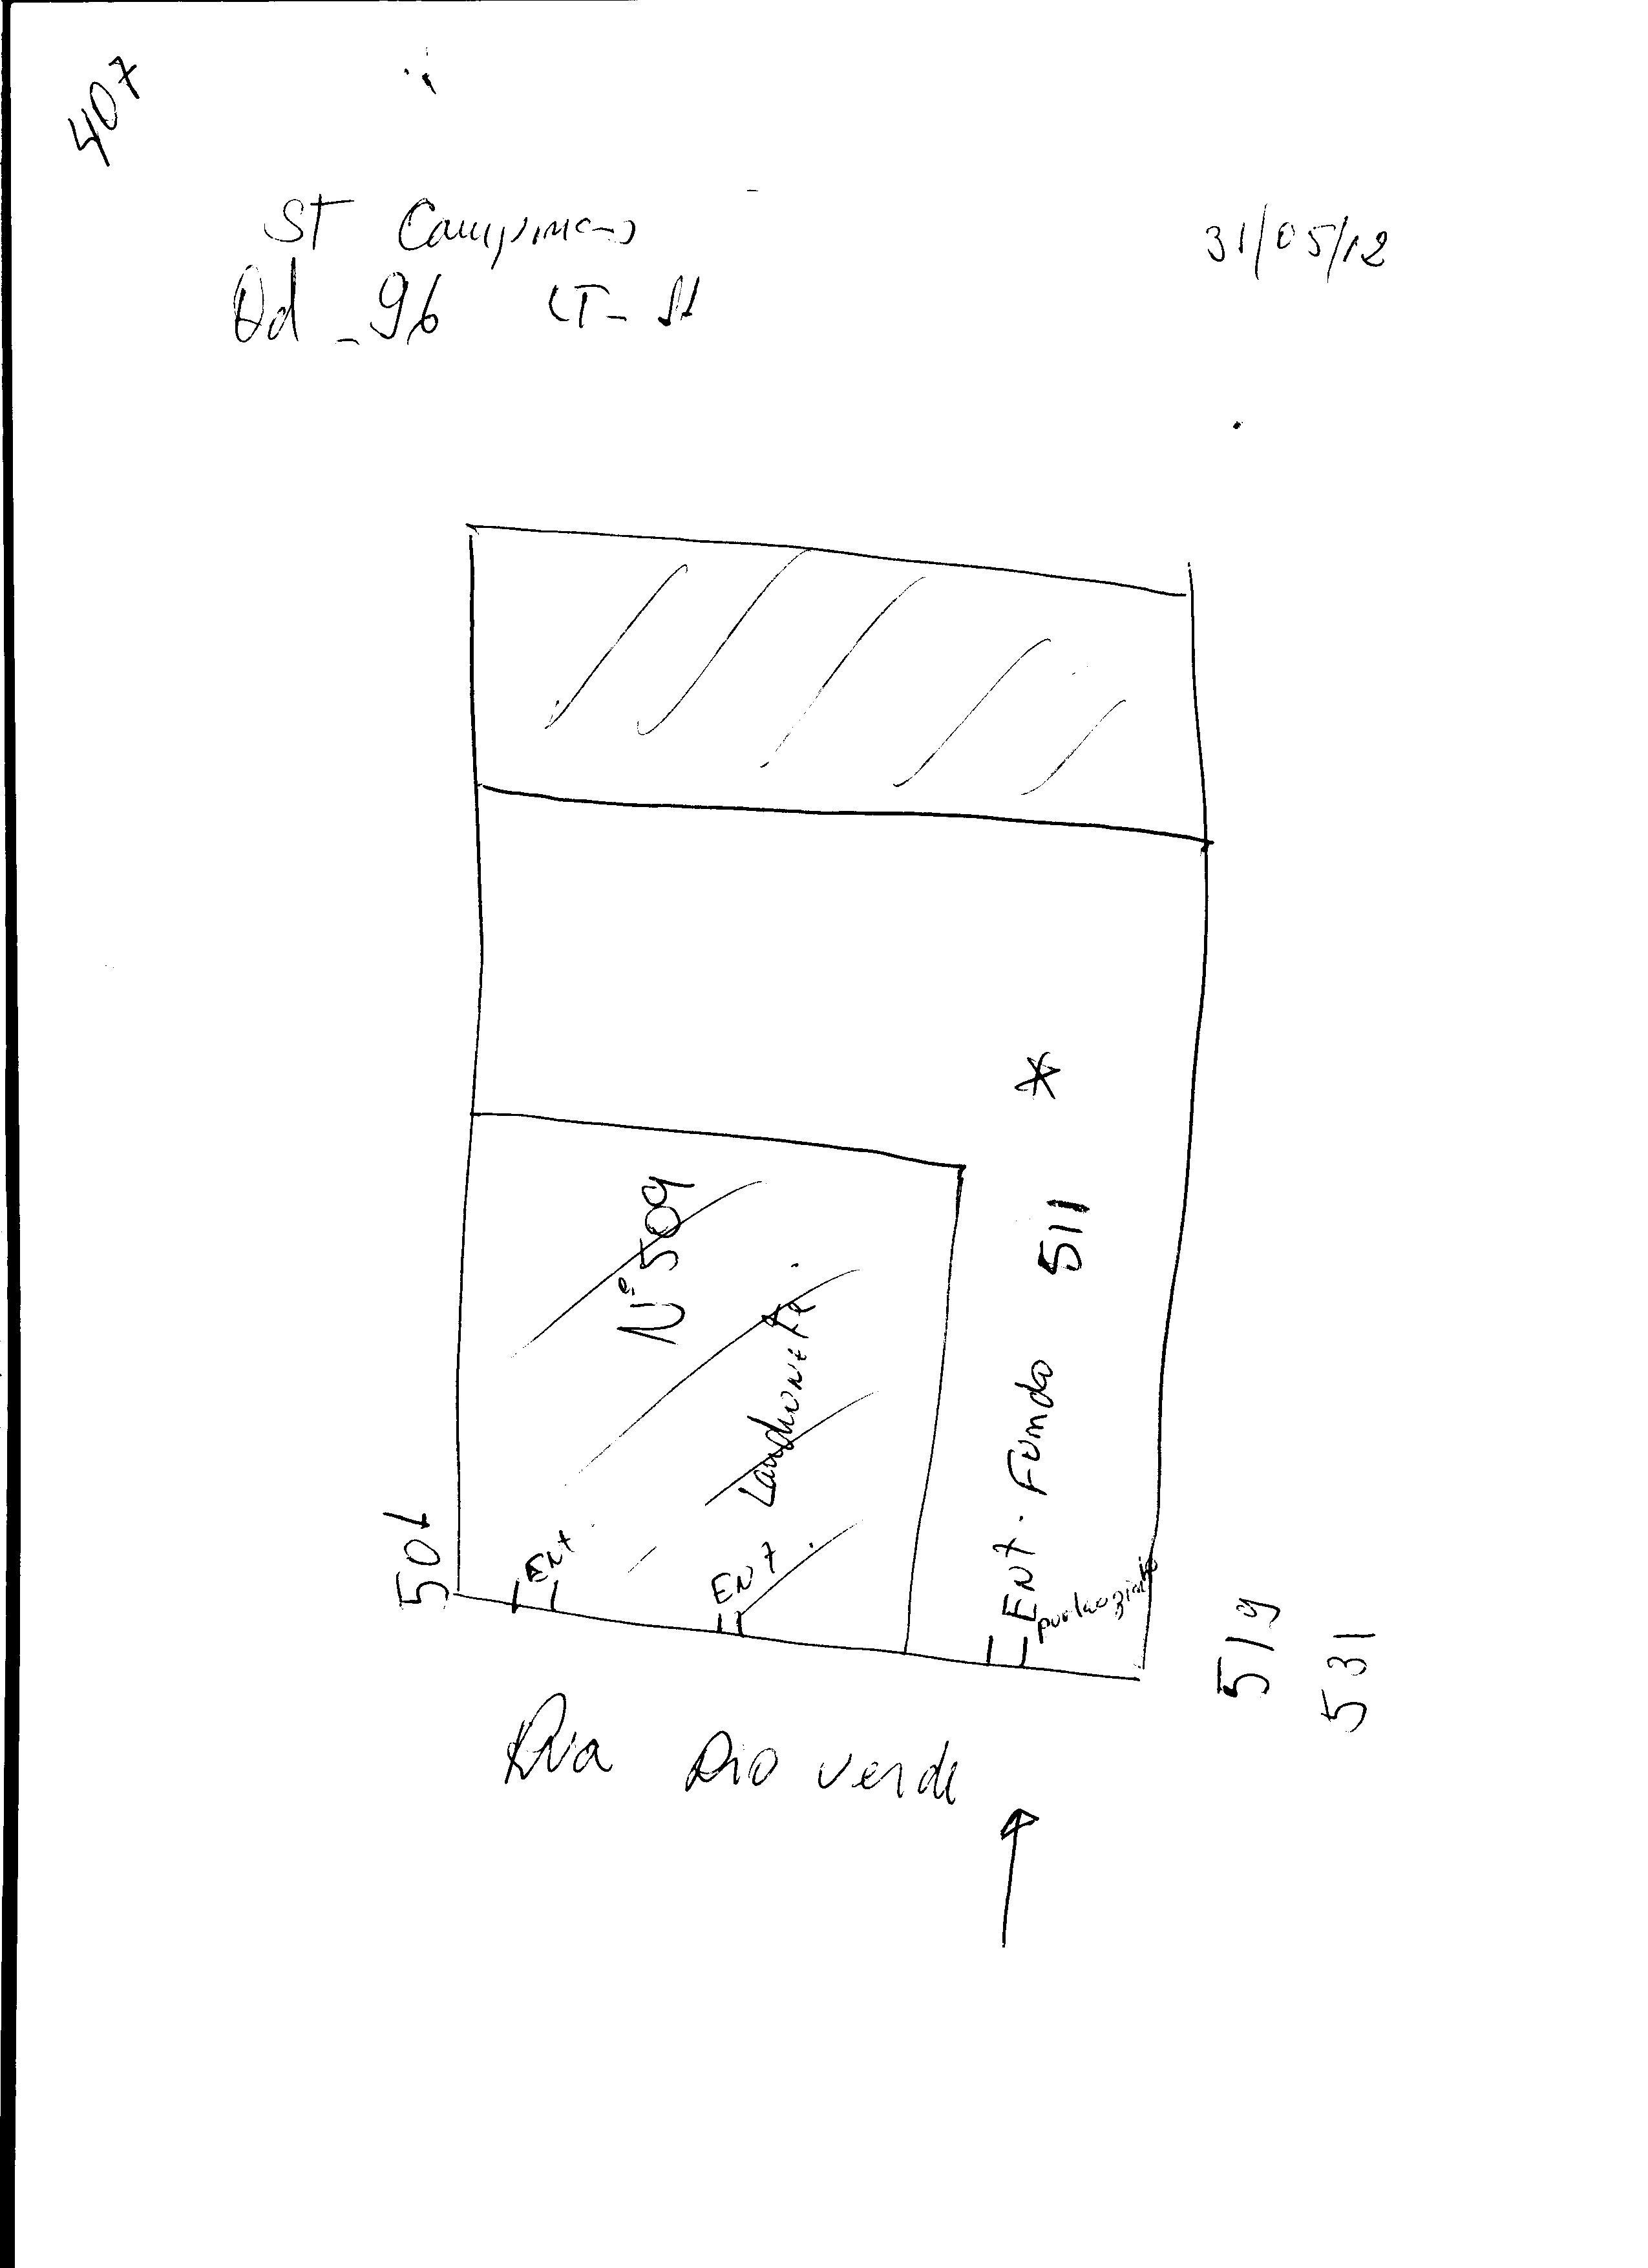 407
ST Campinas
31/05/12
Qd - 96 LT- 11
*
Nº 509
511
Lanchonete
Ent. Fundo
501
Ent
Ent.
portãozinho
519
531
Rua Rio verde